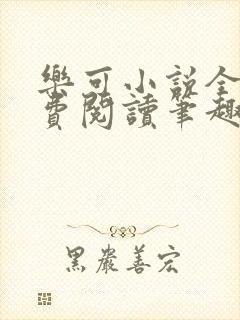 樂可小說全
費閱讀筆趣
黑巖善宏